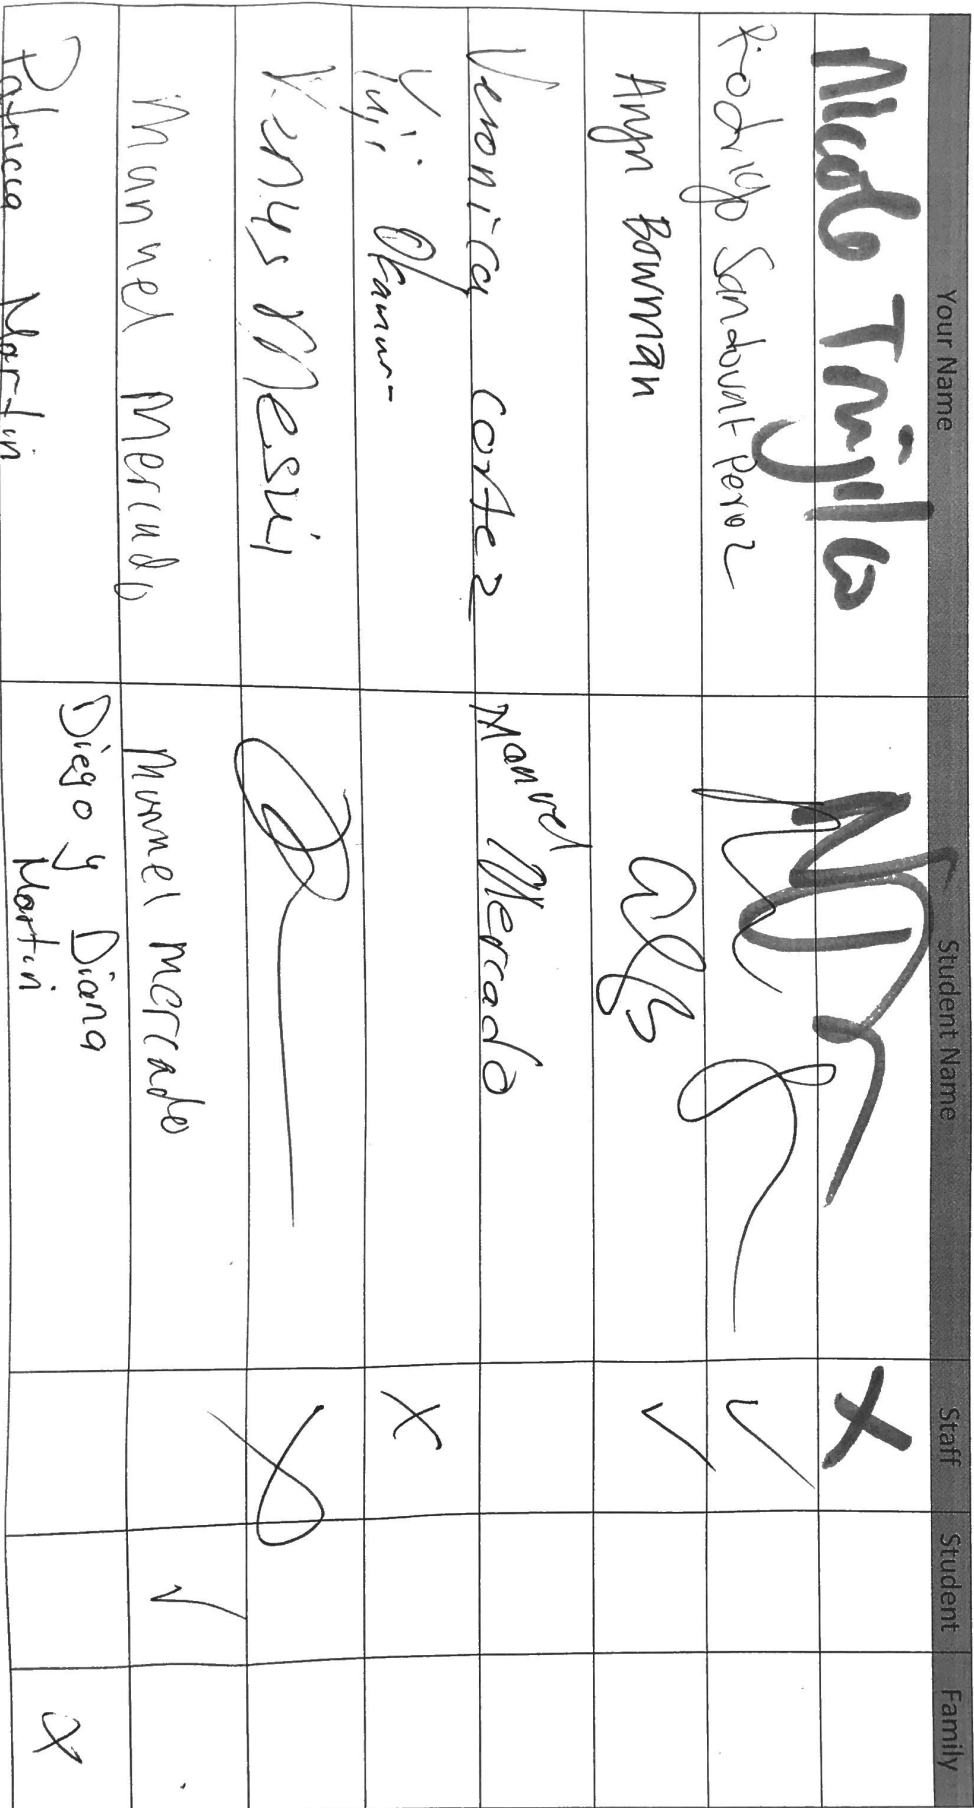 Your Name Student Name Staff Student Family
Nicole Trujillo X
Rodrigo Sandoval Perez ✓
Angn Bowman ✓
Veronica Cortez Manuel Mercado
Yuji X
Venus Mesui X
Manuel Mercado Manuel Mercado ✓
Patricia Martin Diego y Diana
Martin X